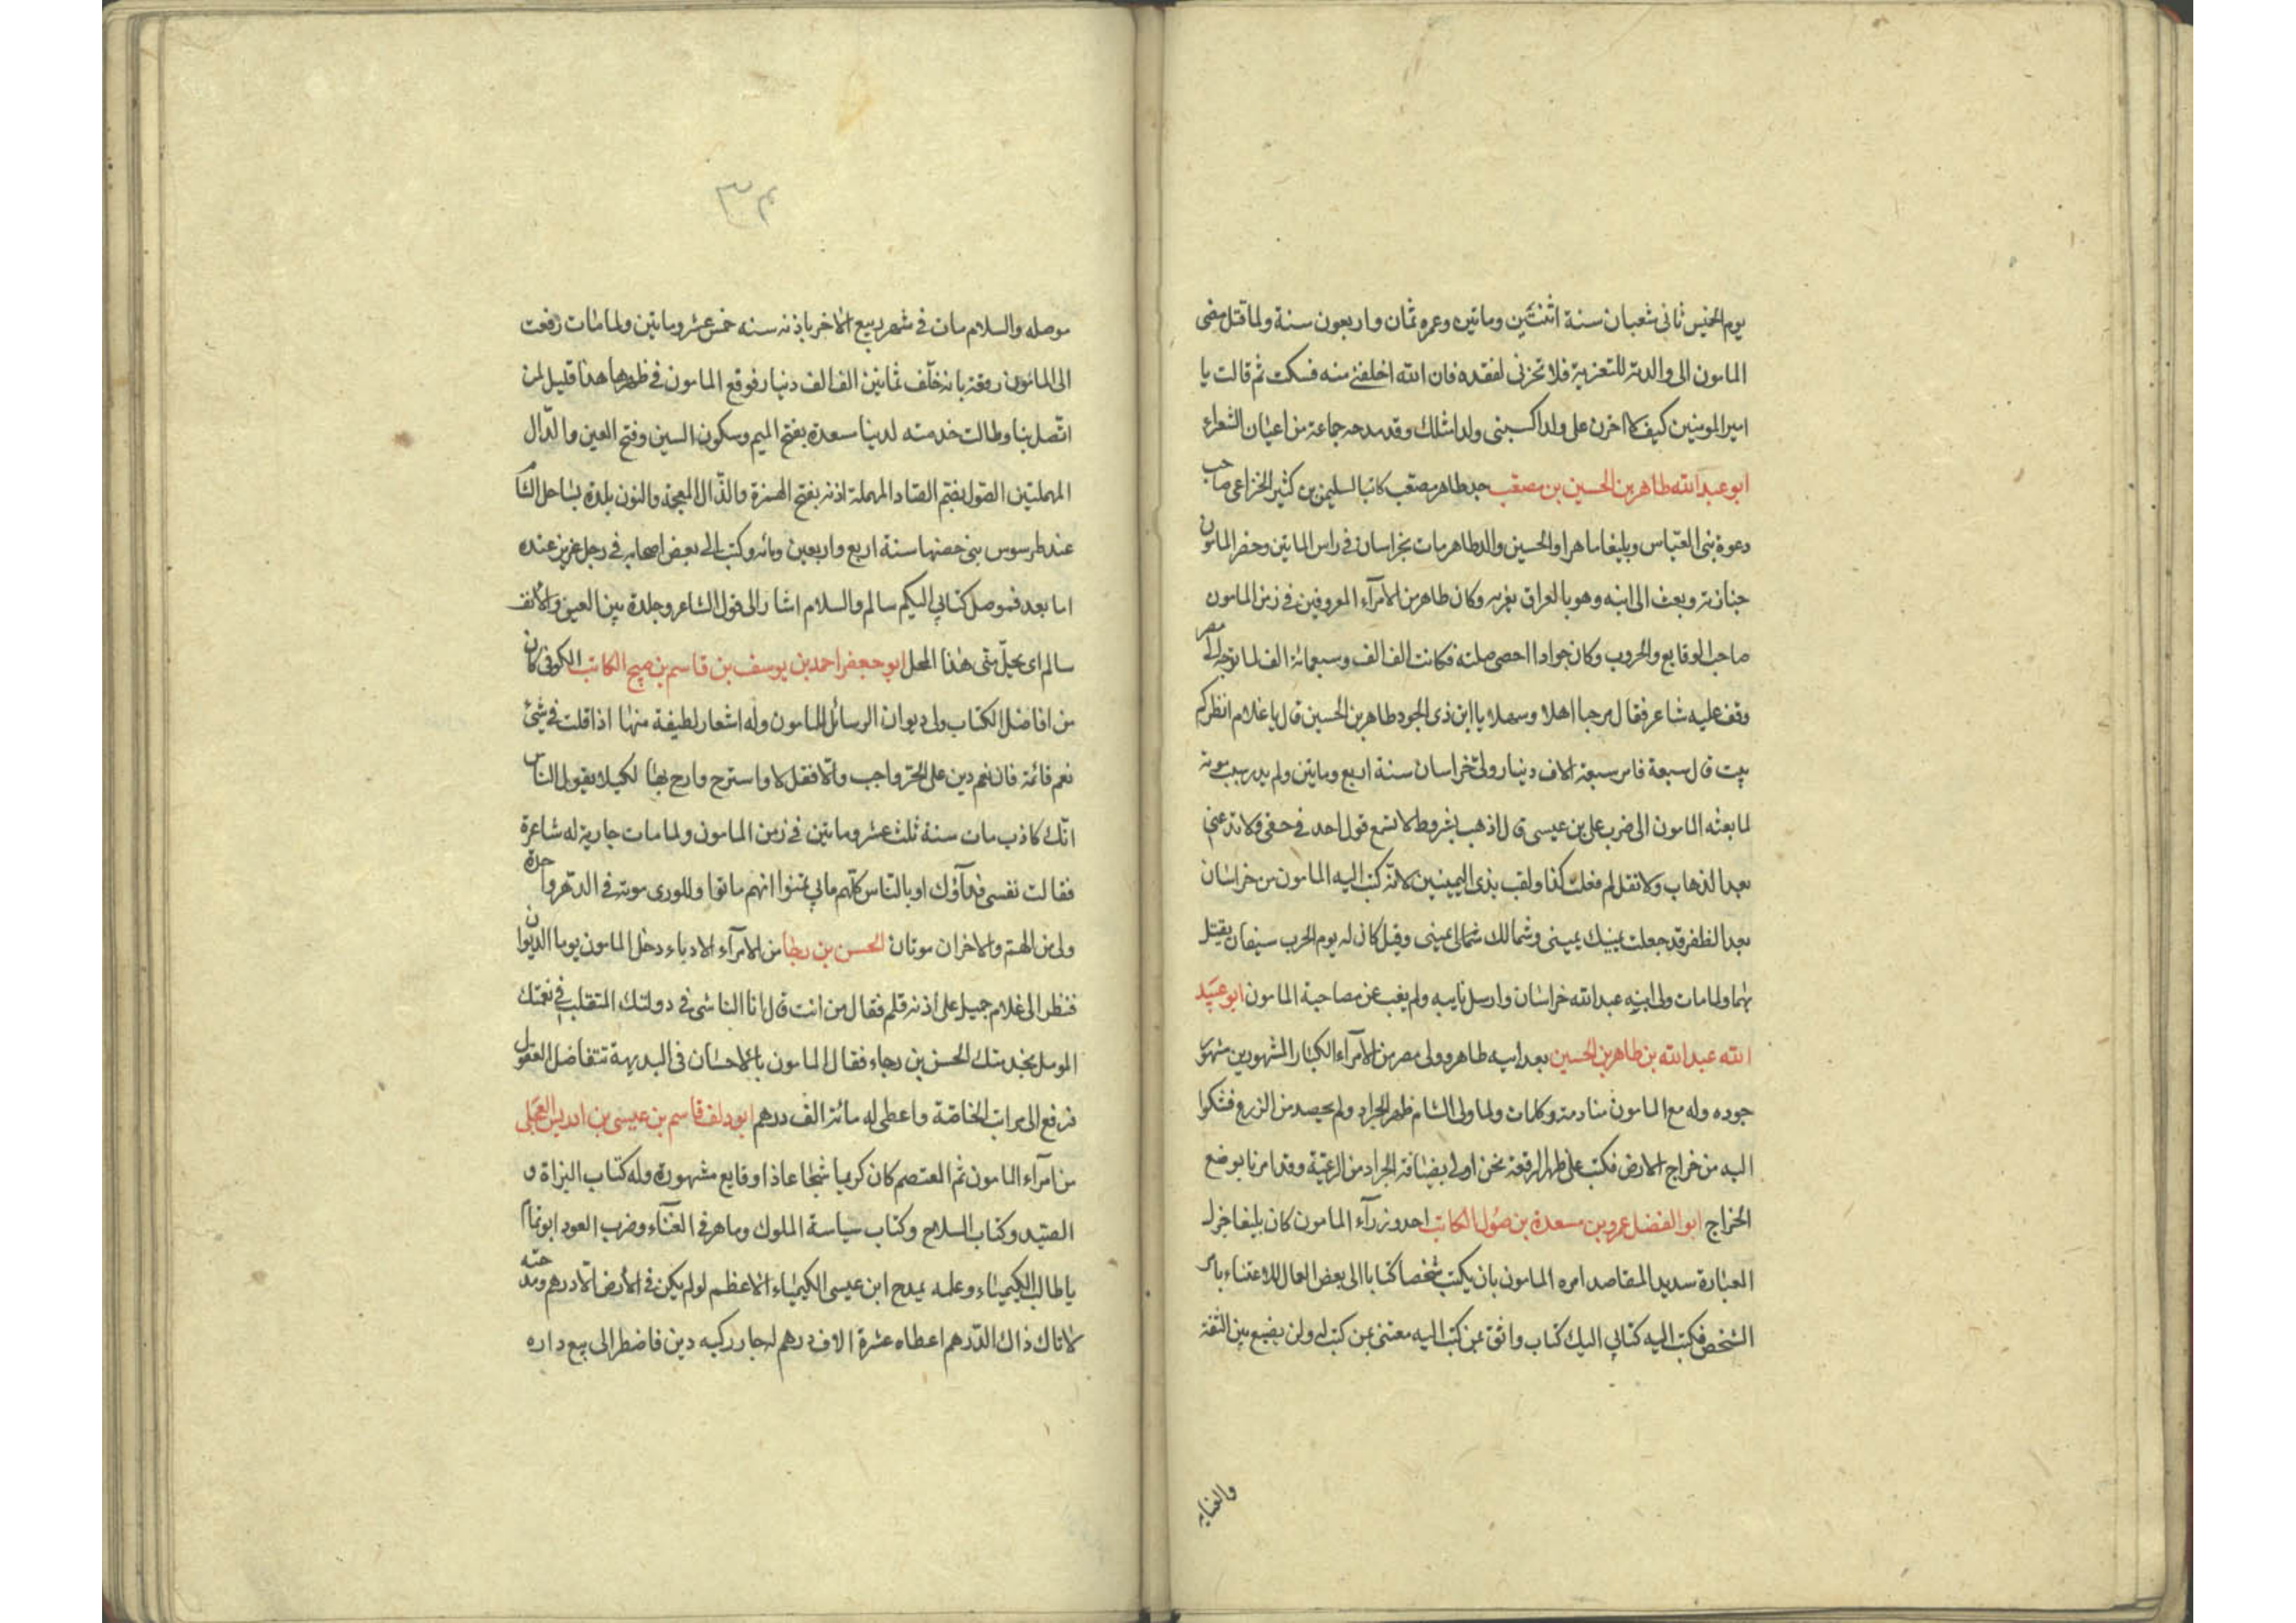 يوم الخميس ثانى شعبان سنة اثنتين وماتين وعمره ثمان واربعون سنة ولما قتل مضى
المامون الى والدته للتعزية فلا تحزنى لفقده فان الله اخلفنى منه فسكت ثم قالت يا
امير المومنين كيف لا احزن على ولد اكسبنى ولدا مثلك وقد مدحه جماعة من اعيان الشعراء
ابو عبد الله طاهر بن الحسين بن مصعب جد طاهر مصعب كاتبا لسليمن بن كثير الخزاعى صاحب
دعوة بنى العباس وبليغا ماهرا والحسين والد طاهر مات بخراسان فى راس الماتين وحضر المامون
جنازته وبعث الى ابنه وهو بالعراق يعزيه وكان طاهر من الامرآء المعروفين فى زمن المامون
صاحب الوقايع والحروب وكان جوادا احصى صلته فكانت الف الف وسبعمائة الف لما توجه الى مصر
وقف عليه شاعر فقال مرحبا اهلا وسهلا يا ابن ذى الجود طاهر بن الحسين قال يا غلام انظر كم
بيت قال سبعة فامر سبعة الاف دينار ولى خراسان سنة اربع وماتين ولم يدر سبب موته
لما بعثه المامون الى ضرب على بن عيسى قال اذهب بشروط لا تسمع قول احد فى حقى ولا
بعد الذهاب ولا تقل لم فعلت كذا ولقب بذى اليمينين لانه كتب اليه المامون من خراسان
بعد الظفر قد جعلت يمينك يمينى وشمالك شمالى يمينى وقيل كان له يوم الحرب سيفان يقتل
بهما ولما مات ولى ابنه عبد الله خراسان وارسل نايبه ولم يغب عن مصاحبة المامون ابو عبيد
الله عبد الله بن طاهر بن الحسين بعد ابيه طاهر وولى مصر من الامرآء الكبار المشهورين مشهور
جوده وله مع المامون منادمة وكلمات ولما ولى الشام ظهر الجراد ولم يحصد من الزرع فشكوا
اليه من خراج الارض فكتب على ظهر الرقعة نحن اولى بضيافة الجراد من الرعية وقد امرنا بوضع
الخراج ابو الفضل عمرو بن مسعدة بن صول الكاتب احد وزرآء المامون كان بليغا جزل
العبارة سديد المقاصد امره المامون بان يكتب شخصا كتابا الى بعض العمال للاعتناء بامر
الشخص فكتب اليه كتابى اليك كتاب واثق بمن كتب اليه معتنى بمن كتب له ولن يضيع بين الثقة
والعناية
موصله والسلام مات فى شهر ربيع الاخر باذنه سنه خمس عشر وماتين ولما مات رفعت
الى المامون رقعة بانه خلّف ثمانين الف الف دينار فوقع المامون فى ظهرها هذا قليل لمن
اتّصل بنا وطالت خدمته لدينا سعدة بفتح الميم وسكون السين وفتح العين والدّال
المهملتين الصول بضم الصاد المهملة اذنه بفتح الهمزة والذّال المعجمة والنون بلدة بساحل الشام
عند طرسوس بنى حصنها سنة اربع واربعين ومائه وكتب الى بعض اصحابه فى رجل عزيز عنده
اما بعد فموصل كتابى اليكم سالم والسلام اشار الى قول الشاعر وجلدة بين العين والانف
سالم اى يحلّ منى هذا المحل ابو جعفر احمد بن يوسف بن قاسم بن صبيح الكاتب الكوفى كان
من افاضل الكتاب ولى ديوان الرسائل للمامون وله اشعار لطيفة منها اذا قلت فى شئ
نعم فائمه فان نعم دين على الحرّ واجب والّا فقل لا واسترح وارح بها لكيلا يقول الناس
انّك كاذب مات سنة ثلث عشر وماتين فى زمن المامون ولما مات جارية له شاعرة
فقالت نفسى فدآؤك او بالناس كلّهم ما بى تمنوا انهم ماتوا وللورى موتة فى الدّهر واحدة
ولى من الهمّ والاحزان موتان الحسن بن رجا من الامرآء الادباء دخل المامون يوما الديوان
فنظر الى غلام جميل على اذنه قلم فقال من انت قال انا الناشى فى دولتك المتقلب فى نعمتك
المومل بخدمتك الحسن بن رجاء فقال المامون بالاحسان فى البديهة تتفاضل العقول
فرفع الى مراتب الخاصّة واعطى له مائة الف درهم ابو دلف قاسم بن عيسى بن ادريس العجلى
من امرآء المامون ثم المعتصم كان كريما شجاعا ذا وقايع مشهورة وله كتاب البزاة و
الصيد وكتاب السلاح وكتاب سياسة الملوك وماهر فى الغنآء وضرب العود ابو تمام
يا طالب للكيمياء وعلمه يمدح ابن عيسى الكيمياء الاعظم لو لم يكن فى الارض الّا درهم ومدحته
لاتاك ذاك الدّرهم اعطاه عشرة الاف درهم له جار ركبه دين فاضطر الى بيع داره